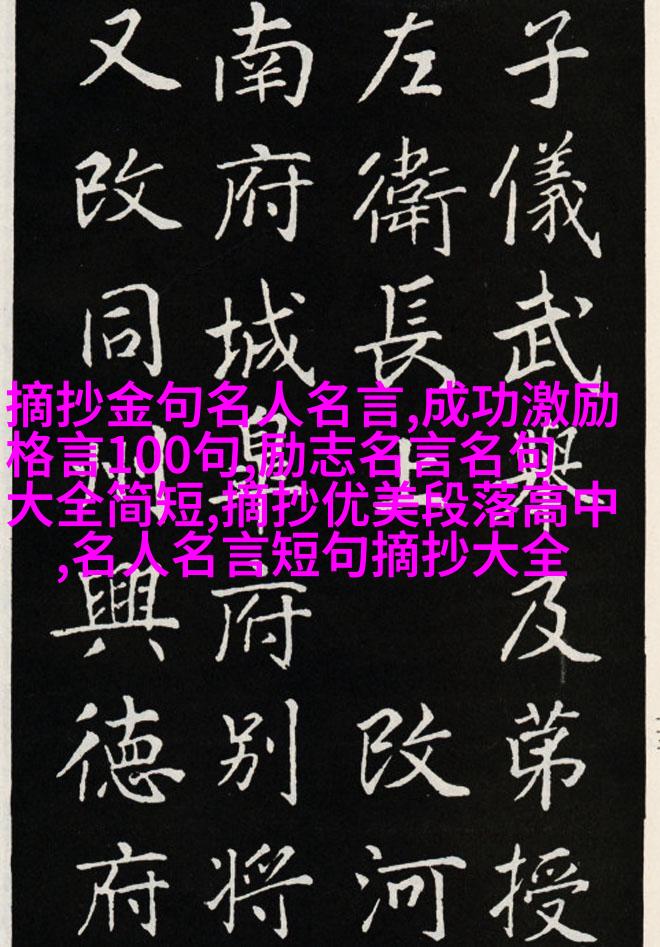 子儀武舉及苐授
左衛長上改河
南府城皋府别将
又改同州興徳府
摘抄金句名人名言,成功激励
格言100句,励志名言名句
大全简短,摘抄优美段落高中
,名人名言短句摘抄大全